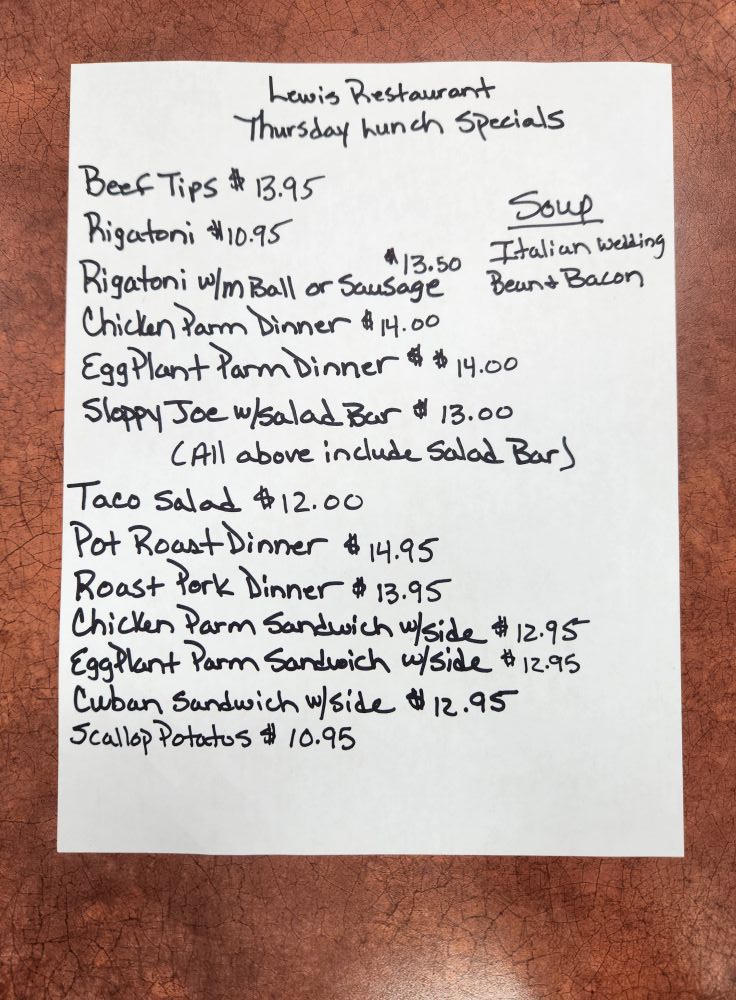 Lewis Restaurant
Thursday Lunch Specials
Beef Tips $ 13.95
Rigatoni $10.95
Rigatoni w/m Ball or Sausage $13.50
Chicken Parm Dinner $ 14.00
EggPlant Parm Dinner $ $ 14.00
Sloppy Joe w/Salad Bar $ 13.00
(All above include Salad Bar)
Soup
Italian Wedding
Bean + Bacon
Taco Salad $ 12.00
Pot Roast Dinner $ 14.95
Roast Pork Dinner $ 13.95
Chicken Parm Sandwich w/side $ 12.95
EggPlant Parm Sandwich w/side $ 12.95
Cuban Sandwich w/side $ 12.95
Scallop Potatos $ 10.95